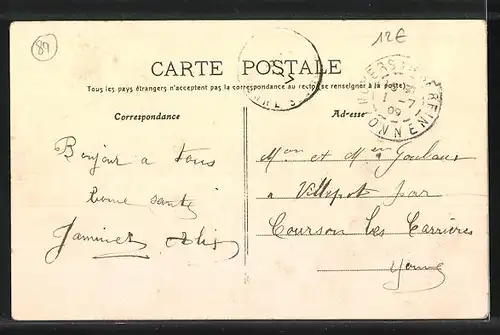 89
12€
CARTE POSTALE
Tous les pays étrangers n'acceptent pas la correspondance au recto (se renseigner à la poste)
Correspondance
Adresse
Bonjour a tous
bonne santé
Mon et Mme
a Villepot par
Courson les Carrières
Yonne
1 -7
09
YONNE